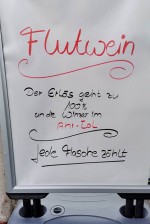 Flutwein
Der Erlös geht zu
100%
an die Winzer im
Ahr-Tal
jede Flasche zählt